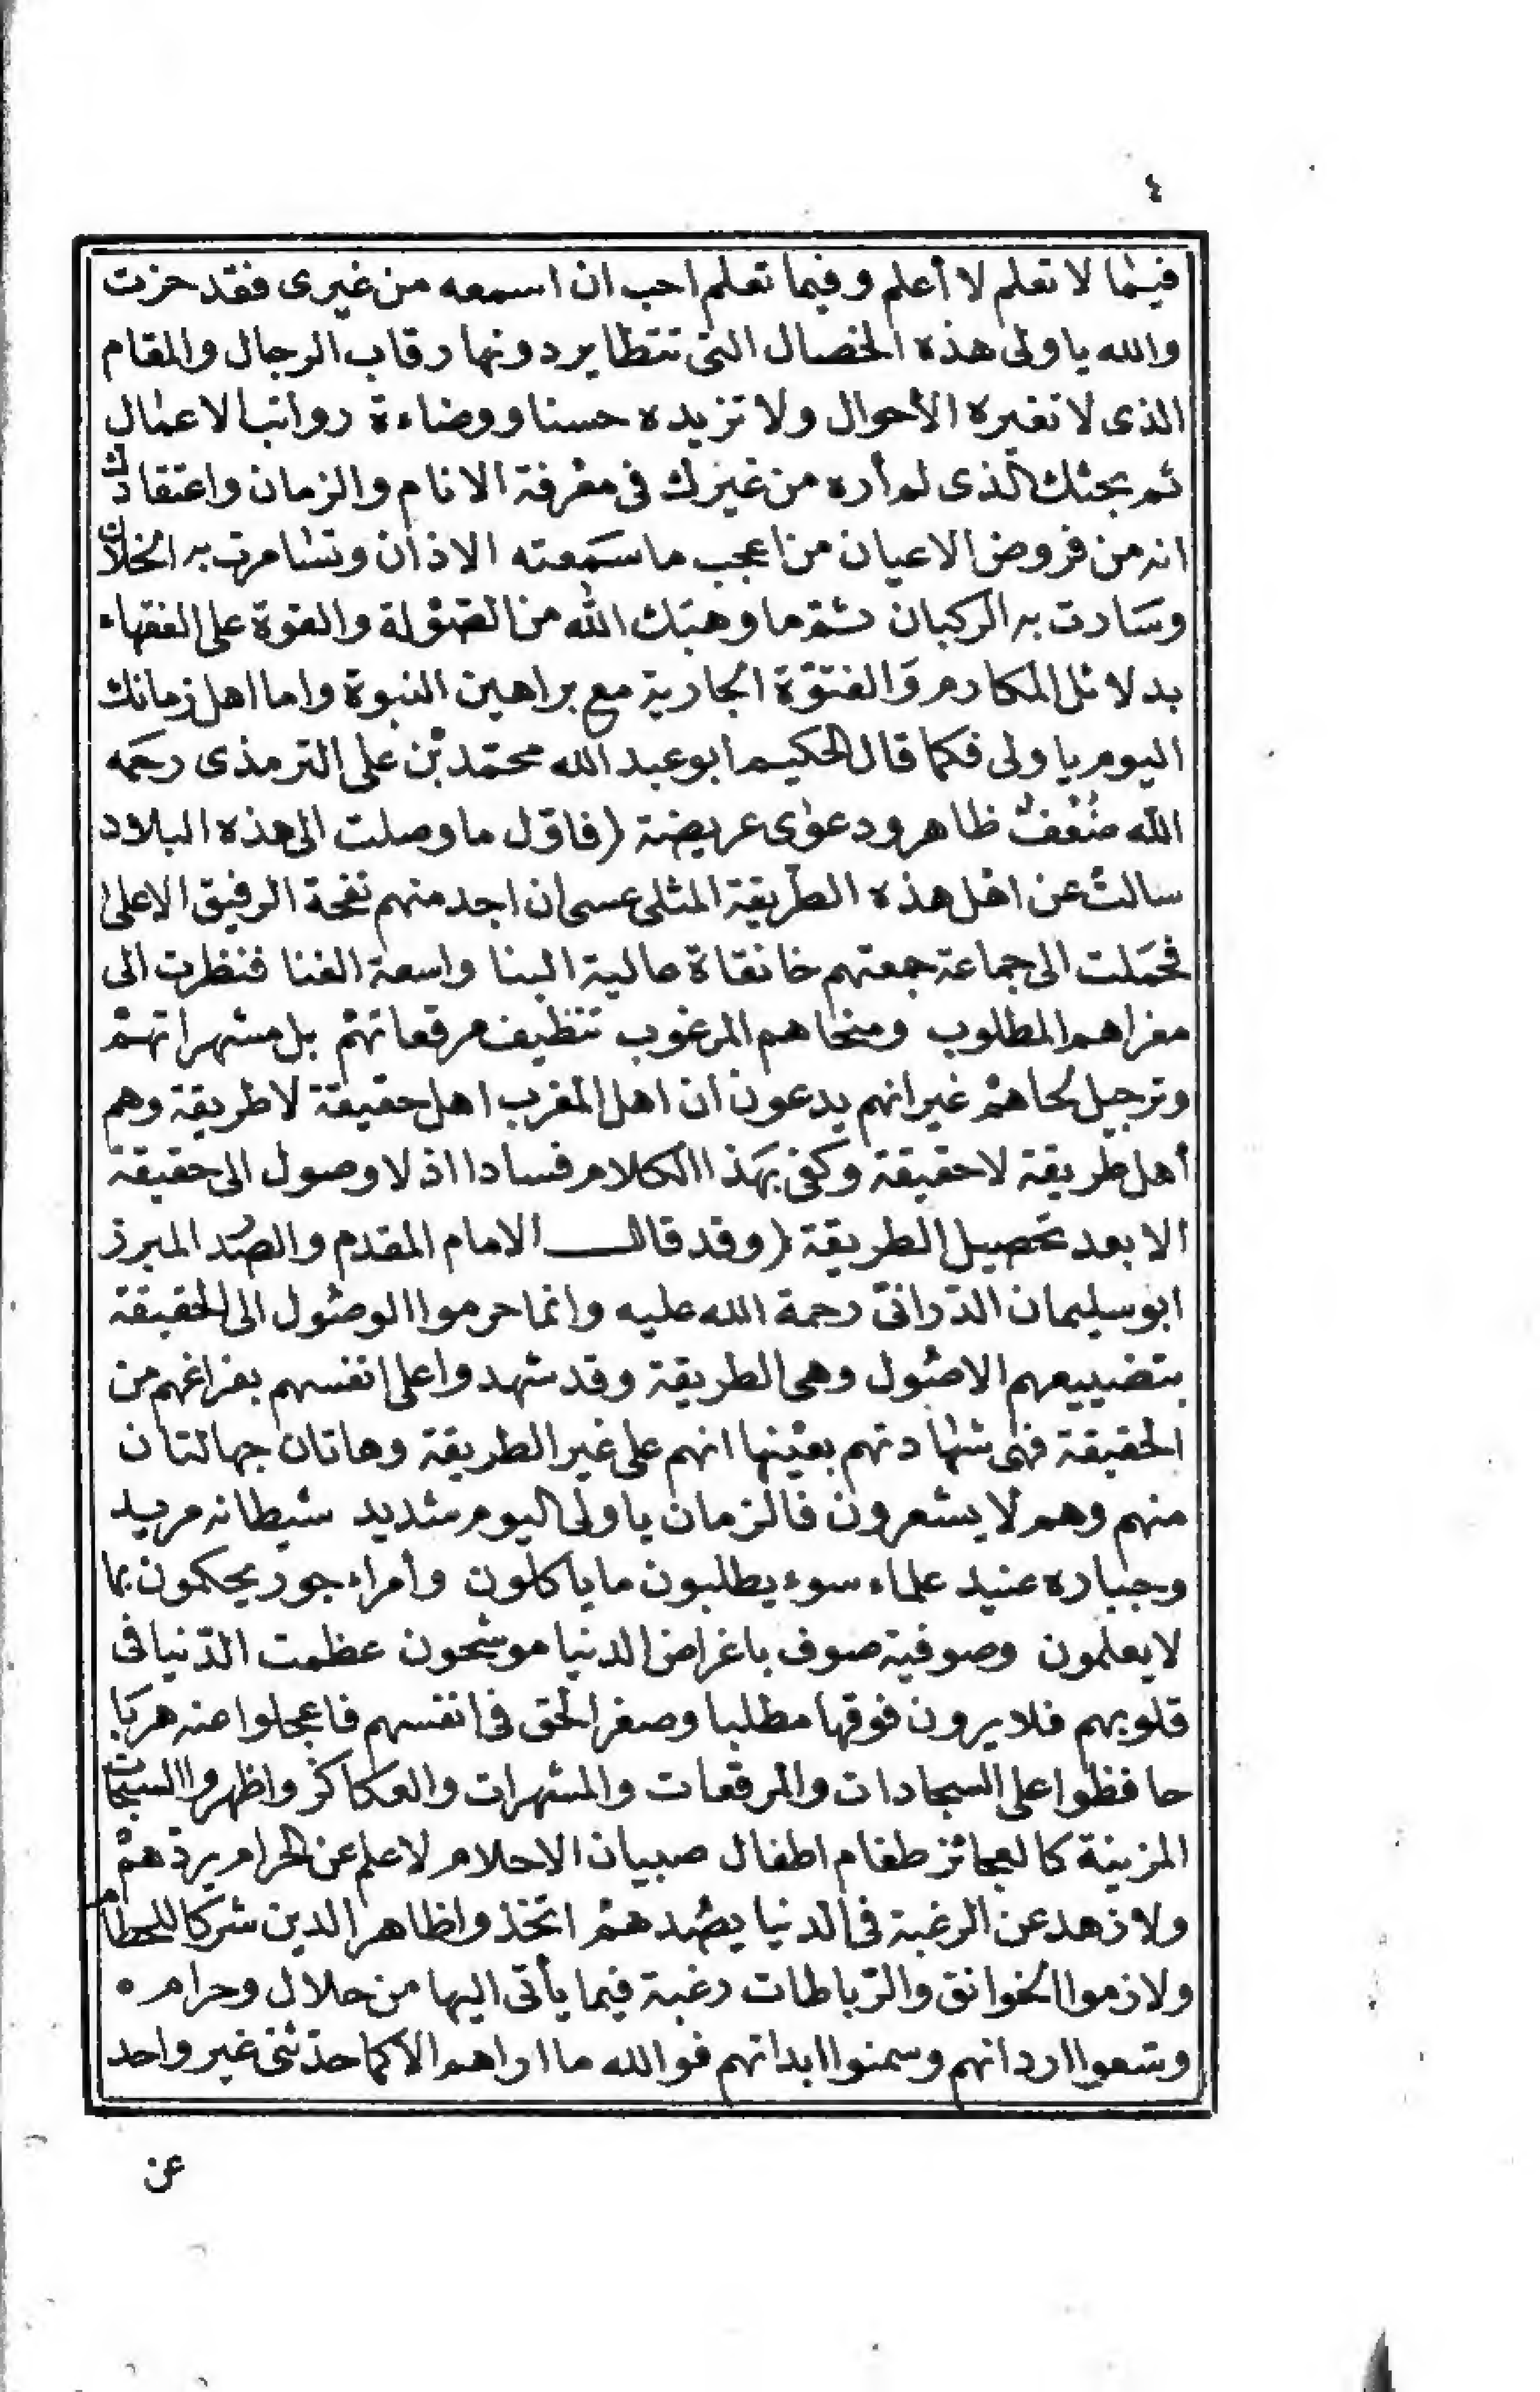 ٤
فيما لا تعلم لا أعلم وفيما تعلم احب ان اسمعه من غيرى فقد حزت
والله ياولى هذه الخصال التى تتطاير دونها رقاب الرجال والمقام
الذى لا تغيره الأحوال ولا تزيده حسنا ووضاءة رواتب الاعمال
ثم بحثك الذى لم أره من غيرك فى معرفة الانام والزمان واعتقادك
انه من فروض الاعيان من اعجب ما سمعته الاذان وتسامرت به الخلان
وسارت به الركبان ثم ما وهبك الله من الصولة والقوة على الفقهاء
بدلائل المكارم والفتوة الجارية مع براهين النبوة واما اهل زمانك
اليوم ياولى فكما قال الحكيم ابو عبد الله محمد بن على الترمذى رحمه
الله ضعف ظاهر ودعوى عريضة (فاول ما وصلت الى هذه البلاد
سالت عن اهل هذه الطريقة المثلى عسى ان اجد منهم نفحة الرفيق الاعلى
فحملت الى جماعة جمعتهم خانقاة عالية البنا واسعة الفنا فنظرت الى
مغزاهم المطلوب ومنحاهم المرغوب تنظيف مرقعاتهم بل مشهراتهم
وترجيل لحاهم غير انهم يدعون ان اهل المغرب اهل حقيقة لا طريقة وهم
أهل طريقة لا حقيقة وكفى بهذا الكلام فسادا اذ لا وصول الى حقيقة
الا بعد تحصيل الطريقة (وقد قال الامام المقدم والصدر المبرز
ابو سليمان الدرانى رحمة الله عليه وانما حرموا الوصول الى الحقيقة
بتضييعهم الاصول وهى الطريقة وقد شهدوا على انفسهم بفراغهم من
الحقيقة فهى شهادتهم بعينها انهم على غير الطريقة وهاتان جهالتان
منهم وهم لا يشعرون فالزمان ياولى اليوم شديد شيطانه مريد
وجباره عنيد علماء سوء يطلبون ما ياكلون وأمراء جور يحكمون بما
لا يعلمون وصوفية صوف باغراض الدنيا موشحون عظمت الدنيا فى
قلوبهم فلا يرون فوقها مطلبا وصغر الحق فى انفسهم فاعجلوا عنه هربا
حافظوا على السجادات والمرقعات والمشهرات والعكاكز واظهروا السبحات
المزينة كالعجائز طغام اطفال صبيان الاحلام لا علم عن الحرام يردهم
ولا زهد عن الرغبة فى الدنيا يصدهم اتخذوا ظاهر الدين شركا للحطام
ولازموا الخوانق والرباطات رغبة فيما يأتى اليها من حلال وحرام ٥
وسعوا اردانهم وسمنوا ابدانهم فوالله ما اراهم الا كما حدثنى غير واحد
عن